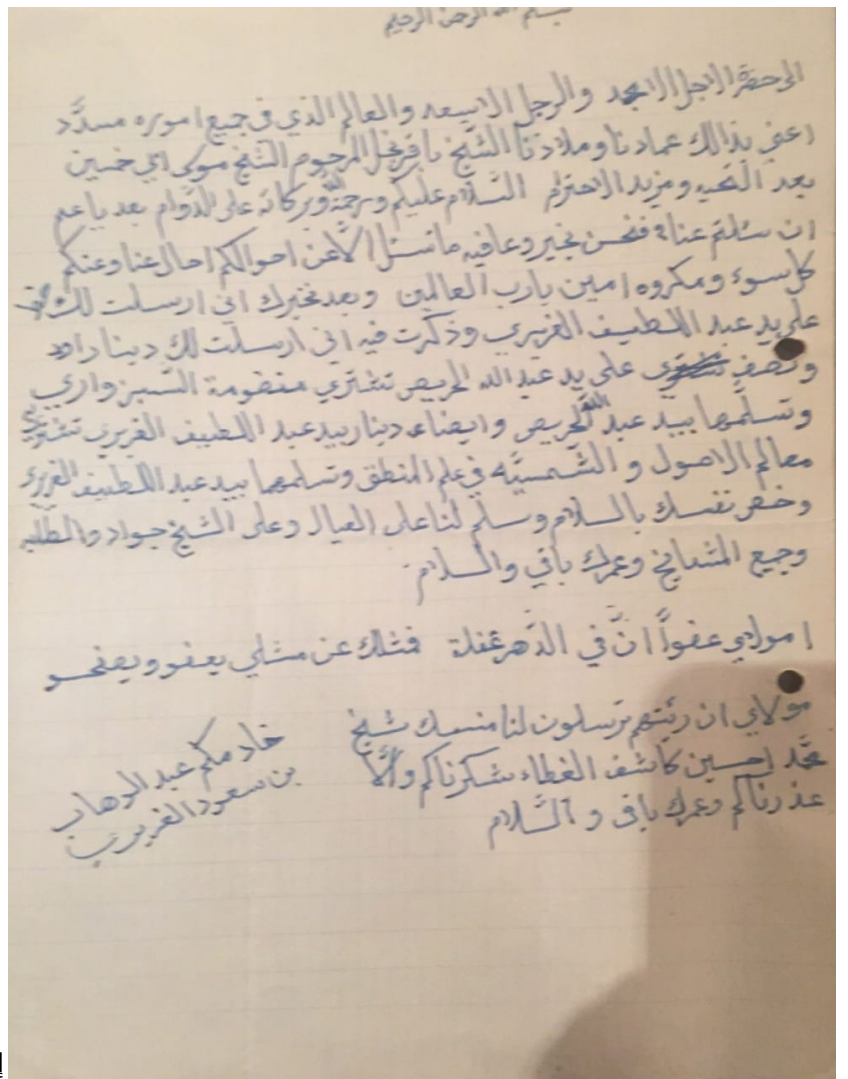 بسم الله الرحمن الرحيم
الى حضرة الاجل الامجد والرجل الاسعد والعالم الذي في جميع اموره مسدَّد
اعني بذالك عمادنا وملاذنا الشَّيخ باقر نجل المرحوم الشَّيخ موسى ابي خمسين
بعد التحيه ومزيد الاحترام السَّلام عليكم ورحمة الله وبركاته على الدَّوام بعد يا عم
ان سئلتم عنا فنحن بخير وعافيه مانسئل الَّا عن احوالكم احال عنا وعنكم
كل سوء ومكروه امين يارب العالمين وبعد نخبرك اني ارسلت لك
على يد عبد اللطيف الغريري وذكرت فيه اني ارسلت لك دينار
ونصف على يد عبد الله الحريص تشتري منضومة السَّبزواري
وتسلَّمها بيد عبد الله الحريص وايضاً دينار بيد عبد اللطيف الغريري تشتري
معالم الاصول و الشَّمسيَّه في علم المنطق وتسلمها بيد عبد اللطيف الغريري
وخص نفسك بالسلام وسلَّم لنا على العيال وعلى الشيخ جواد والطلبه
وجميع المشايخ وعمرك باقي والسلام
امولاي عفواً انَّ في الدَّهر غفلة فمثلك عن مثلي يعفو ويصفحو
مولاي ان رئيتم ترسلون لنا منسك شيخ
محَّمد احسين كاشف الغطاء شكرناكم والَّا
عذرناكم وعمرك باقي و السَّلام
خادمكم عبد الوهاب
بن سعود الغريري